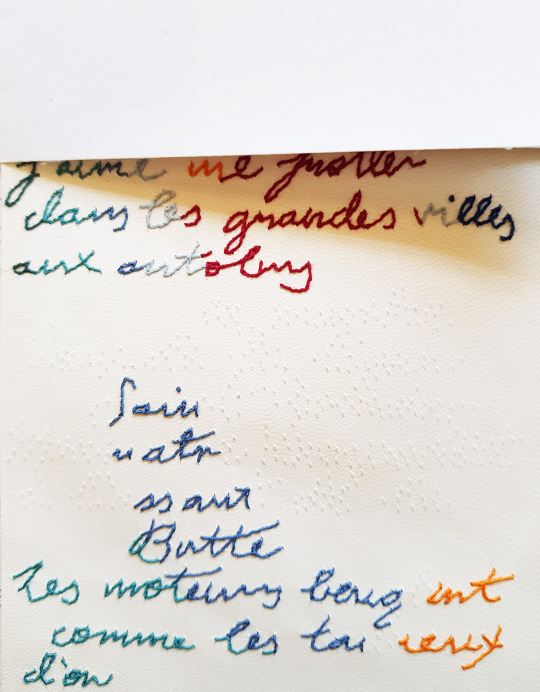 j'aime me frotter
dans les grandes villes
aux autobus
Sain
ssaut
Butte
Les moteurs beug ent
comme les tau reaux
d'or